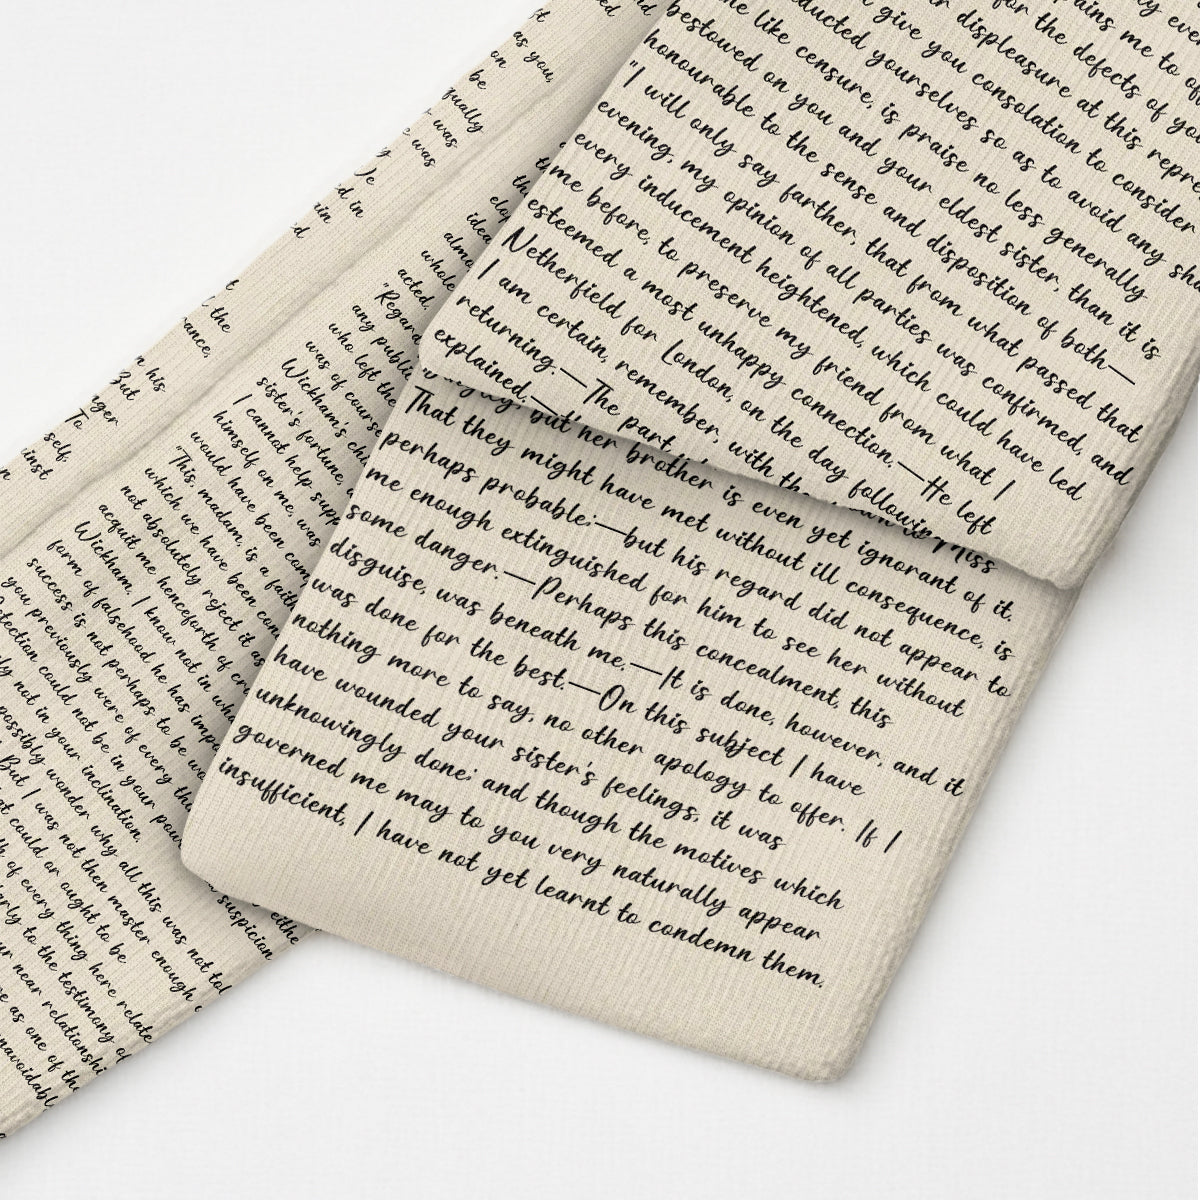 ains me to of
for the defects of you
r displeasure at this repre
give you consolation to consider
ducted yourselves so as to avoid any sha
ne like censure, is praise no less generally
bestowed on you and your eldest sister, than it is
honourable to the sense and disposition of both—
"I will only say farther, that from what passed that
evening, my opinion of all parties was confirmed, and
every inducement heightened, which could have led
me before, to preserve my friend from what I
esteemed a most unhappy connection.—He left
Netherfield for London, on the day following
I am certain, remember, with the
returning.—The part
explained.—
but her brother is even yet ignorant of it.
Miss
That they might have met without ill consequence, is
perhaps probable;—but his regard did not appear to
me enough extinguished for him to see her without
some danger.—Perhaps this concealment, this
disguise, was beneath me.—It is done, however, and it
was done for the best.—On this subject I have
nothing more to say, no other apology to offer. If I
have wounded your sister's feelings, it was
unknowingly done; and though the motives which
governed me may to you very naturally appear
insufficient, I have not yet learnt to condemn them.
as you,
on
be
qually
was
was
De
d in
in
d
t
the
ance,
n his
But
ger
To
self,
inst
n
th
elop
idea
almo
whole
acted.
"Regard
any public
who left the
was of course
Wickham's ch
sister's fortune,
I cannot help supp
himself on me, was
would have been com
"This, madam, is a faith
which we have been con
not absolutely reject it as
acquit me henceforth of cr
Wickham. I know not in wha
form of falsehood he has impo
success is not perhaps to be wo
you previously were of every thi
etection could not be in your pow
eithe
ly not in your inclination. suspicion
possibly wonder why all this was not tol
But I was not then master enough
t could or ought to be
h of every thing here relate
arly to the testimony of
ur near relationshi
e as one of the
navoidabl